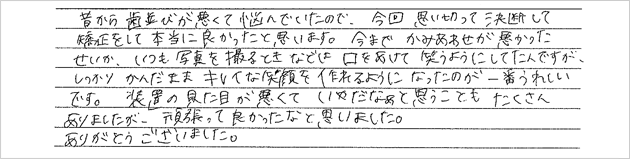 昔から歯並びが悪くて悩んでいたので、今回思い切って決断して
矯正をして本当に良かったと思います。今までかみあわせが悪かった
せいか、いつも写真を撮るときなどは口をあけて笑うようにしてたんですが、
しっかりかんだままキレイな笑顔を作れるようになったのが一番うれしい
です。装置の見た目が悪くていやだなぁと思うこともたくさん
ありましたが、頑張って良かったなと思いました。
ありがとうございました。